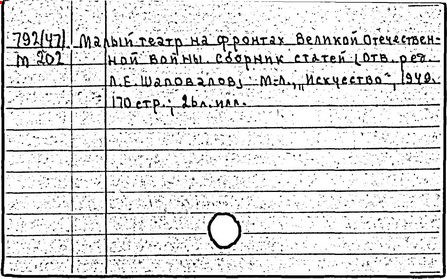 792(47) Малый театр на фронтах Великой Отечествен-
т 202 ной войны. Сборник статей (Отв. ред.
Л.Е. Шаповалов) М-Л, „Искусство", 1949.
170 стр.; 26 л. илл.